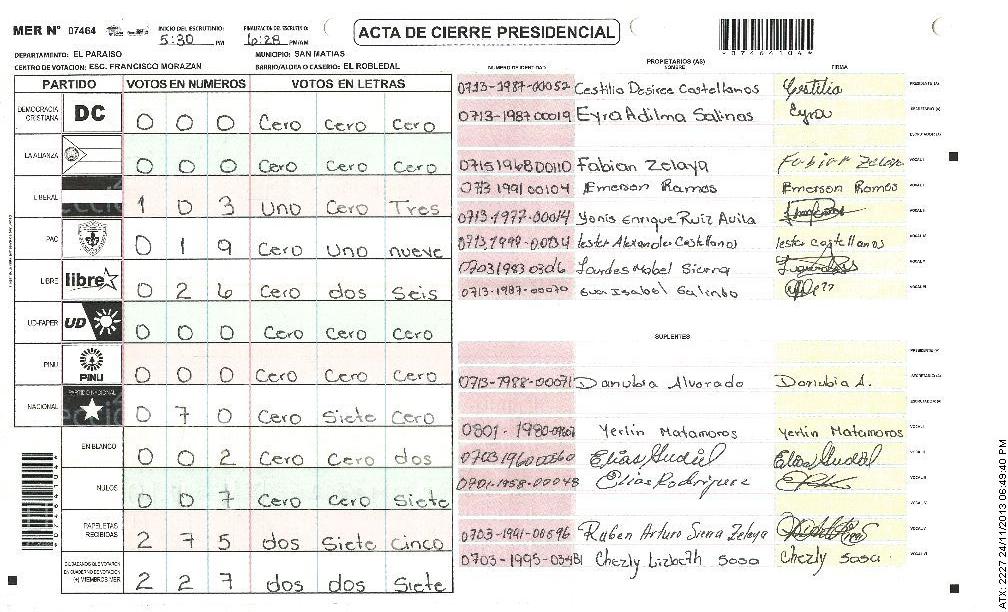 MER N° 07464
INICIO DEL ESCRUTINIO:
5:30 PM
FINALIZACIÓN DEL ESCRUTINIO:
6:28 PM/AM
ACTA DE CIERRE PRESIDENCIAL
DEPARTAMENTO: EL PARAISO
MUNICIPIO: SAN MATIAS
CENTRO DE VOTACION: ESC. FRANCISCO MORAZAN
BARRIO/ALDEA O CASERIO: EL ROBLEDAL
PARTIDO VOTOS EN NUMEROS VOTOS EN LETRAS
DEMOCRACIA CRISTIANA DC 0 0 0 Cero Cero Cero
LA ALIANZA 0 0 0 Cero Cero Cero
LIBERAL 1 0 3 Uno Cero Tres
PAC 0 1 9 Cero Uno nueve
LIBRE libre 0 2 6 Cero dos Seis
UD-FAPER UD 0 0 0 Cero Cero Cero
PINU PINU 0 0 0 Cero Cero Cero
NACIONAL PARTIDO NACIONAL 0 7 0 Cero Siete Cero
EN BLANCO 0 0 2 Cero Cero dos
NULOS 0 0 7 Cero Cero Siete
PAPELETAS RECIBIDAS 2 7 5 dos Siete Cinco
CIUDADANOS QUE VOTARON EN CUADERNO DE VOTACION (+) MIEMBROS MER 2 2 7 dos dos Siete
PROPIETARIOS (AS)
NUMERO DE IDENTIDAD NOMBRE FIRMA
0713-1987-00052 Cestilia Desiree Castellanos Cestilia
0713-1987 00019 Eyra Adilma Salinas Eyra
0715 1968 00110 Fabian Zelaya Fabian Zelaya
0713 1991 00104 Emerson Ramos Emerson Ramos
0713-1977-00014 Yonis Enrique Ruiz Avila
Lester Alexander Castellanos lester castellanos
Lourdes Mabel Sierra
0713-1987-00070 Eva Isabel Galindo
SUPLENTES
0713-1988-00071 Danubia Alvorado Danubia A.
0801-1980- Yerlin Matamoros Yerlin Matamoros
0703 1960 00360 Elias Gudiel Elias Gudiel
-1958-00048 Elias Rodriguez
0703-1991-00596 Ruben Arturo Sierra Zelaya
0703-1995-03481 Chezly Lizbeth Sosa Chezly Sosa
ATX: 2227 24/11/2013 06:49:40 PM